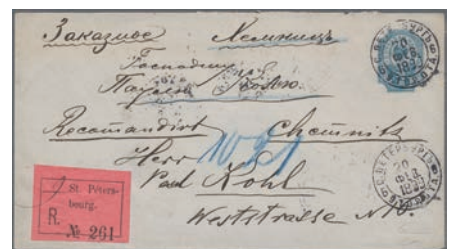 Заказное Хемницъ
Господину
Паулю Колю.
Recomandirt Chemnitz
Herr
Paul Kohl
Weststrasse
1091
St. Peters-
bourg.
R.
№ 261
С. ПЕТЕРБУРГЪ
20
ФЕВ